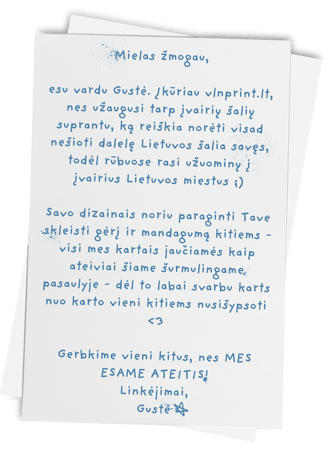 Mielas žmogau,
esu vardu Gustė. Įkūriau vlnprint.lt,
nes užaugusi tarp įvairių šalių
suprantu, ką reiškia norėti visad
nešioti dalelę Lietuvos šalia savęs,
todėl rūbuose rasi užuominų į
įvairius Lietuvos miestus ;)
Savo dizainais noriu paraginti Tave
skleisti gėrį ir mandagumą kitiems -
visi mes kartais jaučiamės kaip
ateiviai šiame šurmulingame
pasaulyje - dėl to labai svarbu karts
nuo karto vieni kitiems nusišypsoti
<3
Gerbkime vieni kitus, nes MES
ESAME ATEITIS!
Linkėjimai,
Gustė